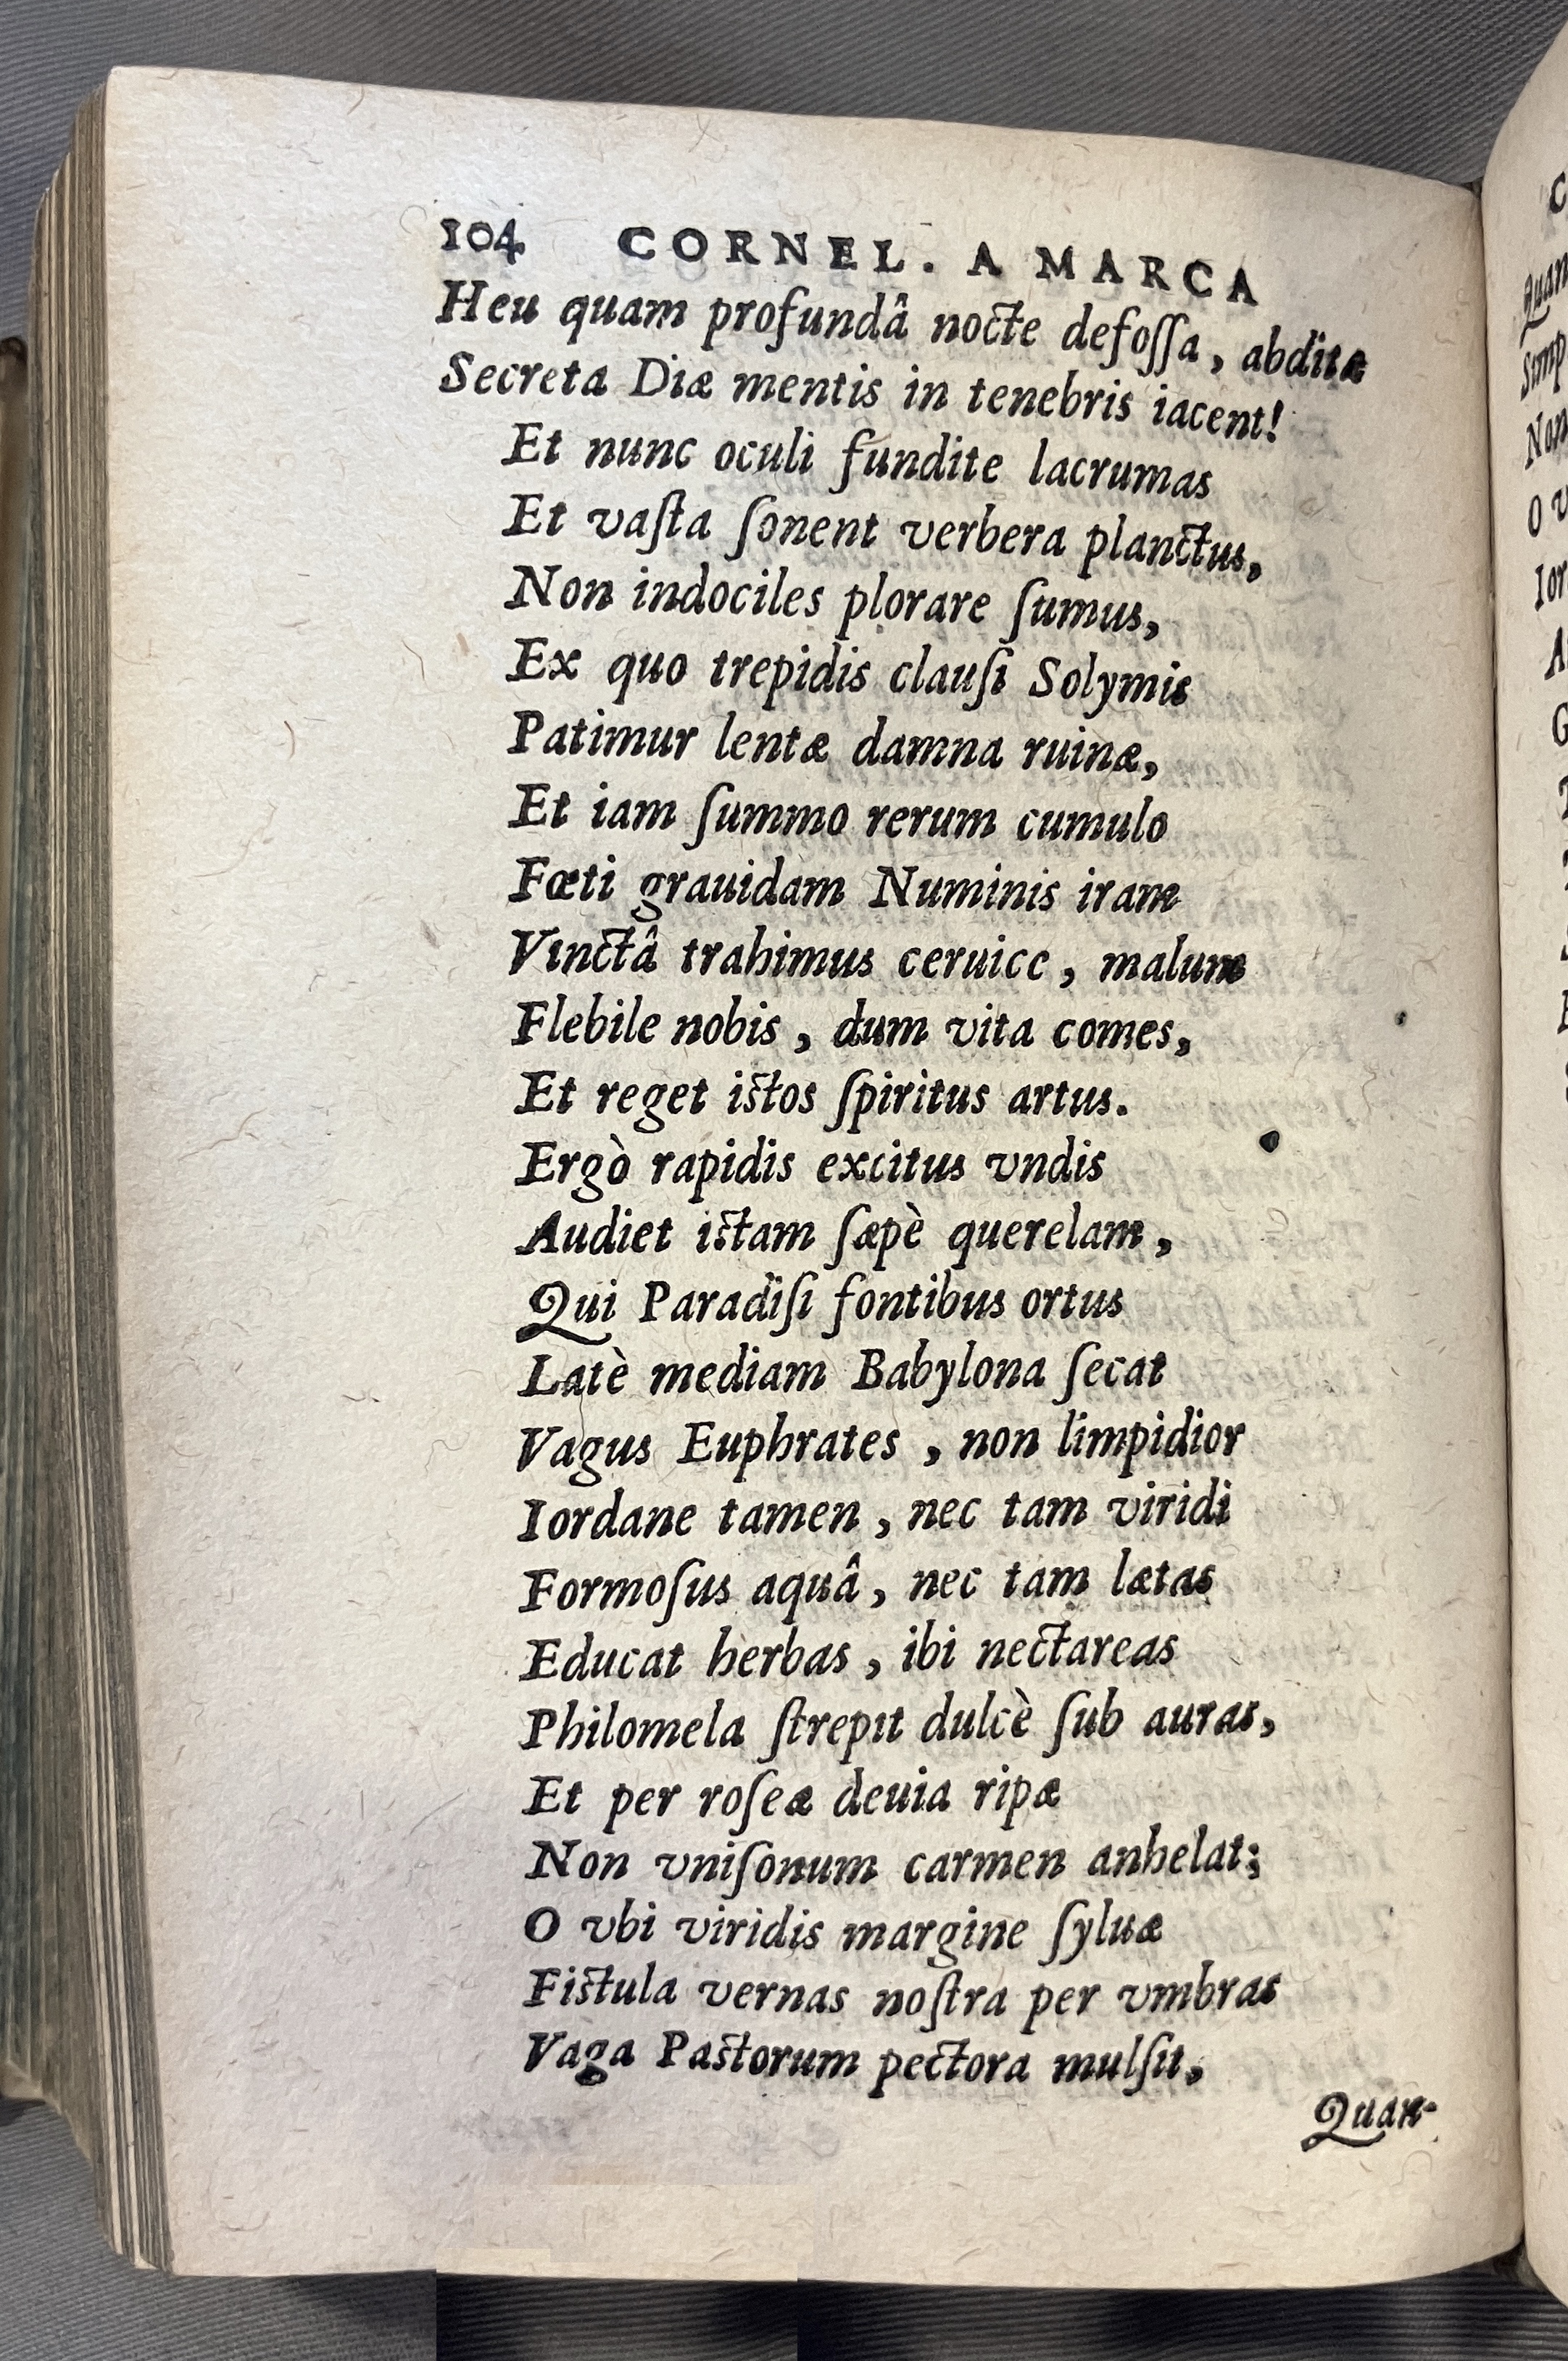 104 CORNEL. A MARCA
Heu quam profundâ nocte defoſſa, abditæ
Secreta Diæ mentis in tenebris iacent!
Et nunc oculi fundite lacrumas
Et vaſta ſonent verbera planctus,
Non indociles plorare ſumus,
Ex quo trepidis clauſi Solymis
Patimur lentæ damna ruinæ,
Et iam ſummo rerum cumulo
Fœti grauidam Numinis iram
Vinctâ trahimus ceruice, malum
Flebile nobis, dum vita comes,
Et reget istos ſpiritus artus.
Ergò rapidis excitus vndis
Audiet istam ſæpè querelam,
Qui Paradiſi fontibus ortus
Latè mediam Babylona ſecat
Vagus Euphrates, non limpidior
Iordane tamen, nec tam viridi
Formoſus aquâ, nec tam lætas
Educat herbas, ibi nectareas
Philomela ſtrepit dulcè ſub auras,
Et per roſeæ deuia ripæ
Non vniſonum carmen anhelat;
O vbi viridis margine ſyluæ
Fistula vernas noſtra per vmbras
Vaga Pastorum pectora mulſit,
Quan-